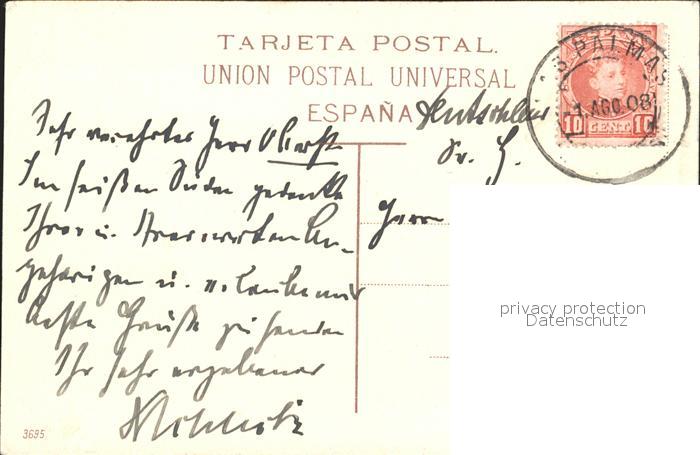 TARJETA POSTAL.
UNION POSTAL UNIVERSAL
ESPAÑA
LAS PALMAS
1 AGO 08
10 CENT. 10
Deutschland
Sr. H.
Herrn
Sehr verehrter Herr Oberst
Im heißen Süden gedenke
Ihrer u. Ihrer werten An-
gehörigen u. erlaube mir
beste Grüße zu senden
Ihr sehr ergebener
privacy protection
Datenschutz
3695